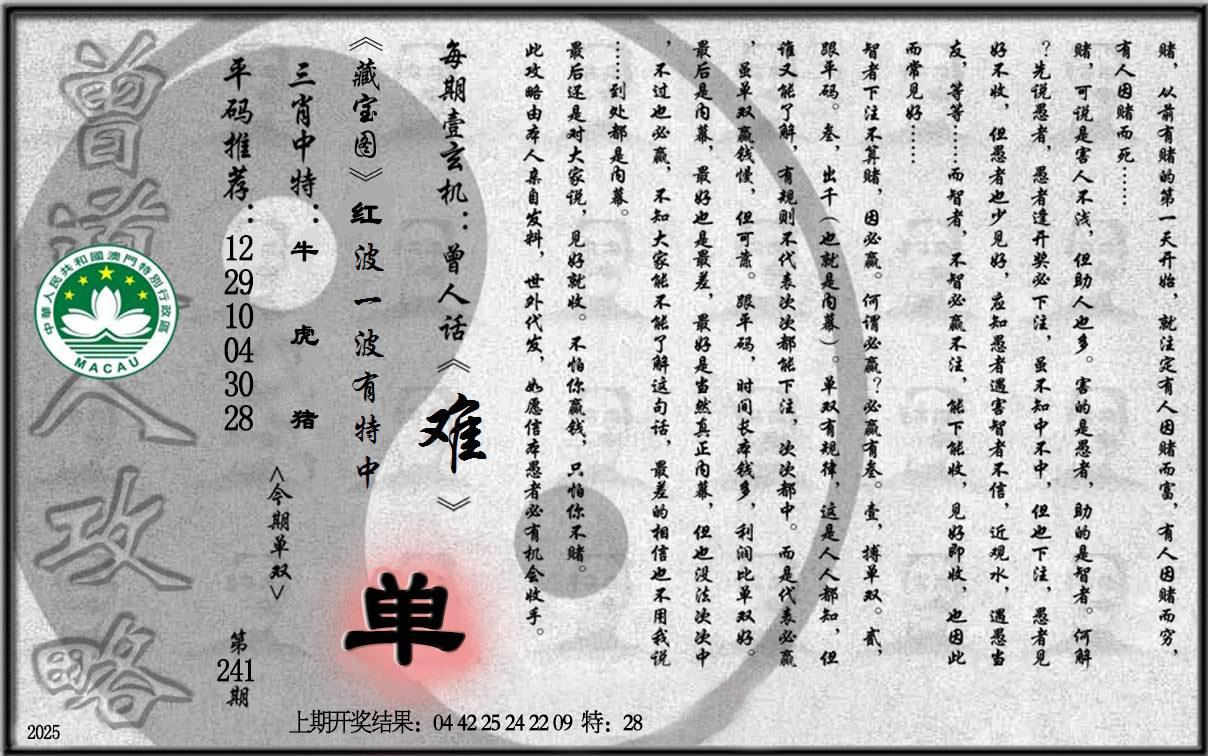 赌，从前有赌的第一天开始，就注定有人因赌而富，有人因赌而穷，
有人因赌而死……
赌，可说是害人不浅，但助人也多。害的是愚者，助的是智者。何解
？先说愚者，愚者逢开奖必下注，虽不知中不中，但也下注，愚者见
好不收，但愚者也少见好，应知愚者遇害智者不信，近观水，遇愚当
友，等等……而智者，不智必赢不注，能下能收，见好即收，也因此
而常见好……
智者下注不算赌，因必赢。何谓必赢？必赢有叁。壹，搏单双。贰，
跟平码。叁，出千（也就是内幕）。单双有规律，这是人人都知，但
谁又能了解，有规则不代表次次都能下注，次次都中。而是代表必赢
，虽单双赢钱慢，但可靠。跟平码，时间长本钱多，利润比单双好。
最后是内幕，最好也是最差，最好是当然真正内幕，但也没法次次中
，不过也必赢，不知大家能不能了解这句话，最差的相信也不用我说
……到处都是内幕。
最后还是对大家说，见好就收。不怕你赢钱，只怕你不赌。
此攻略由本人亲自发料，世外代发，如愿信本愚者必有机会收手。
每期壹玄机：曾人话《难》
《藏宝图》红波一波有特中
单
三肖中特：牛虎猪
<今期单双>
平码推荐：12 29 10 04 30 28
第241期
曾道人攻略
中華人民共和國澳門特別行政區
MACAU
上期开奖结果：04 42 25 24 22 09 特：28
2025